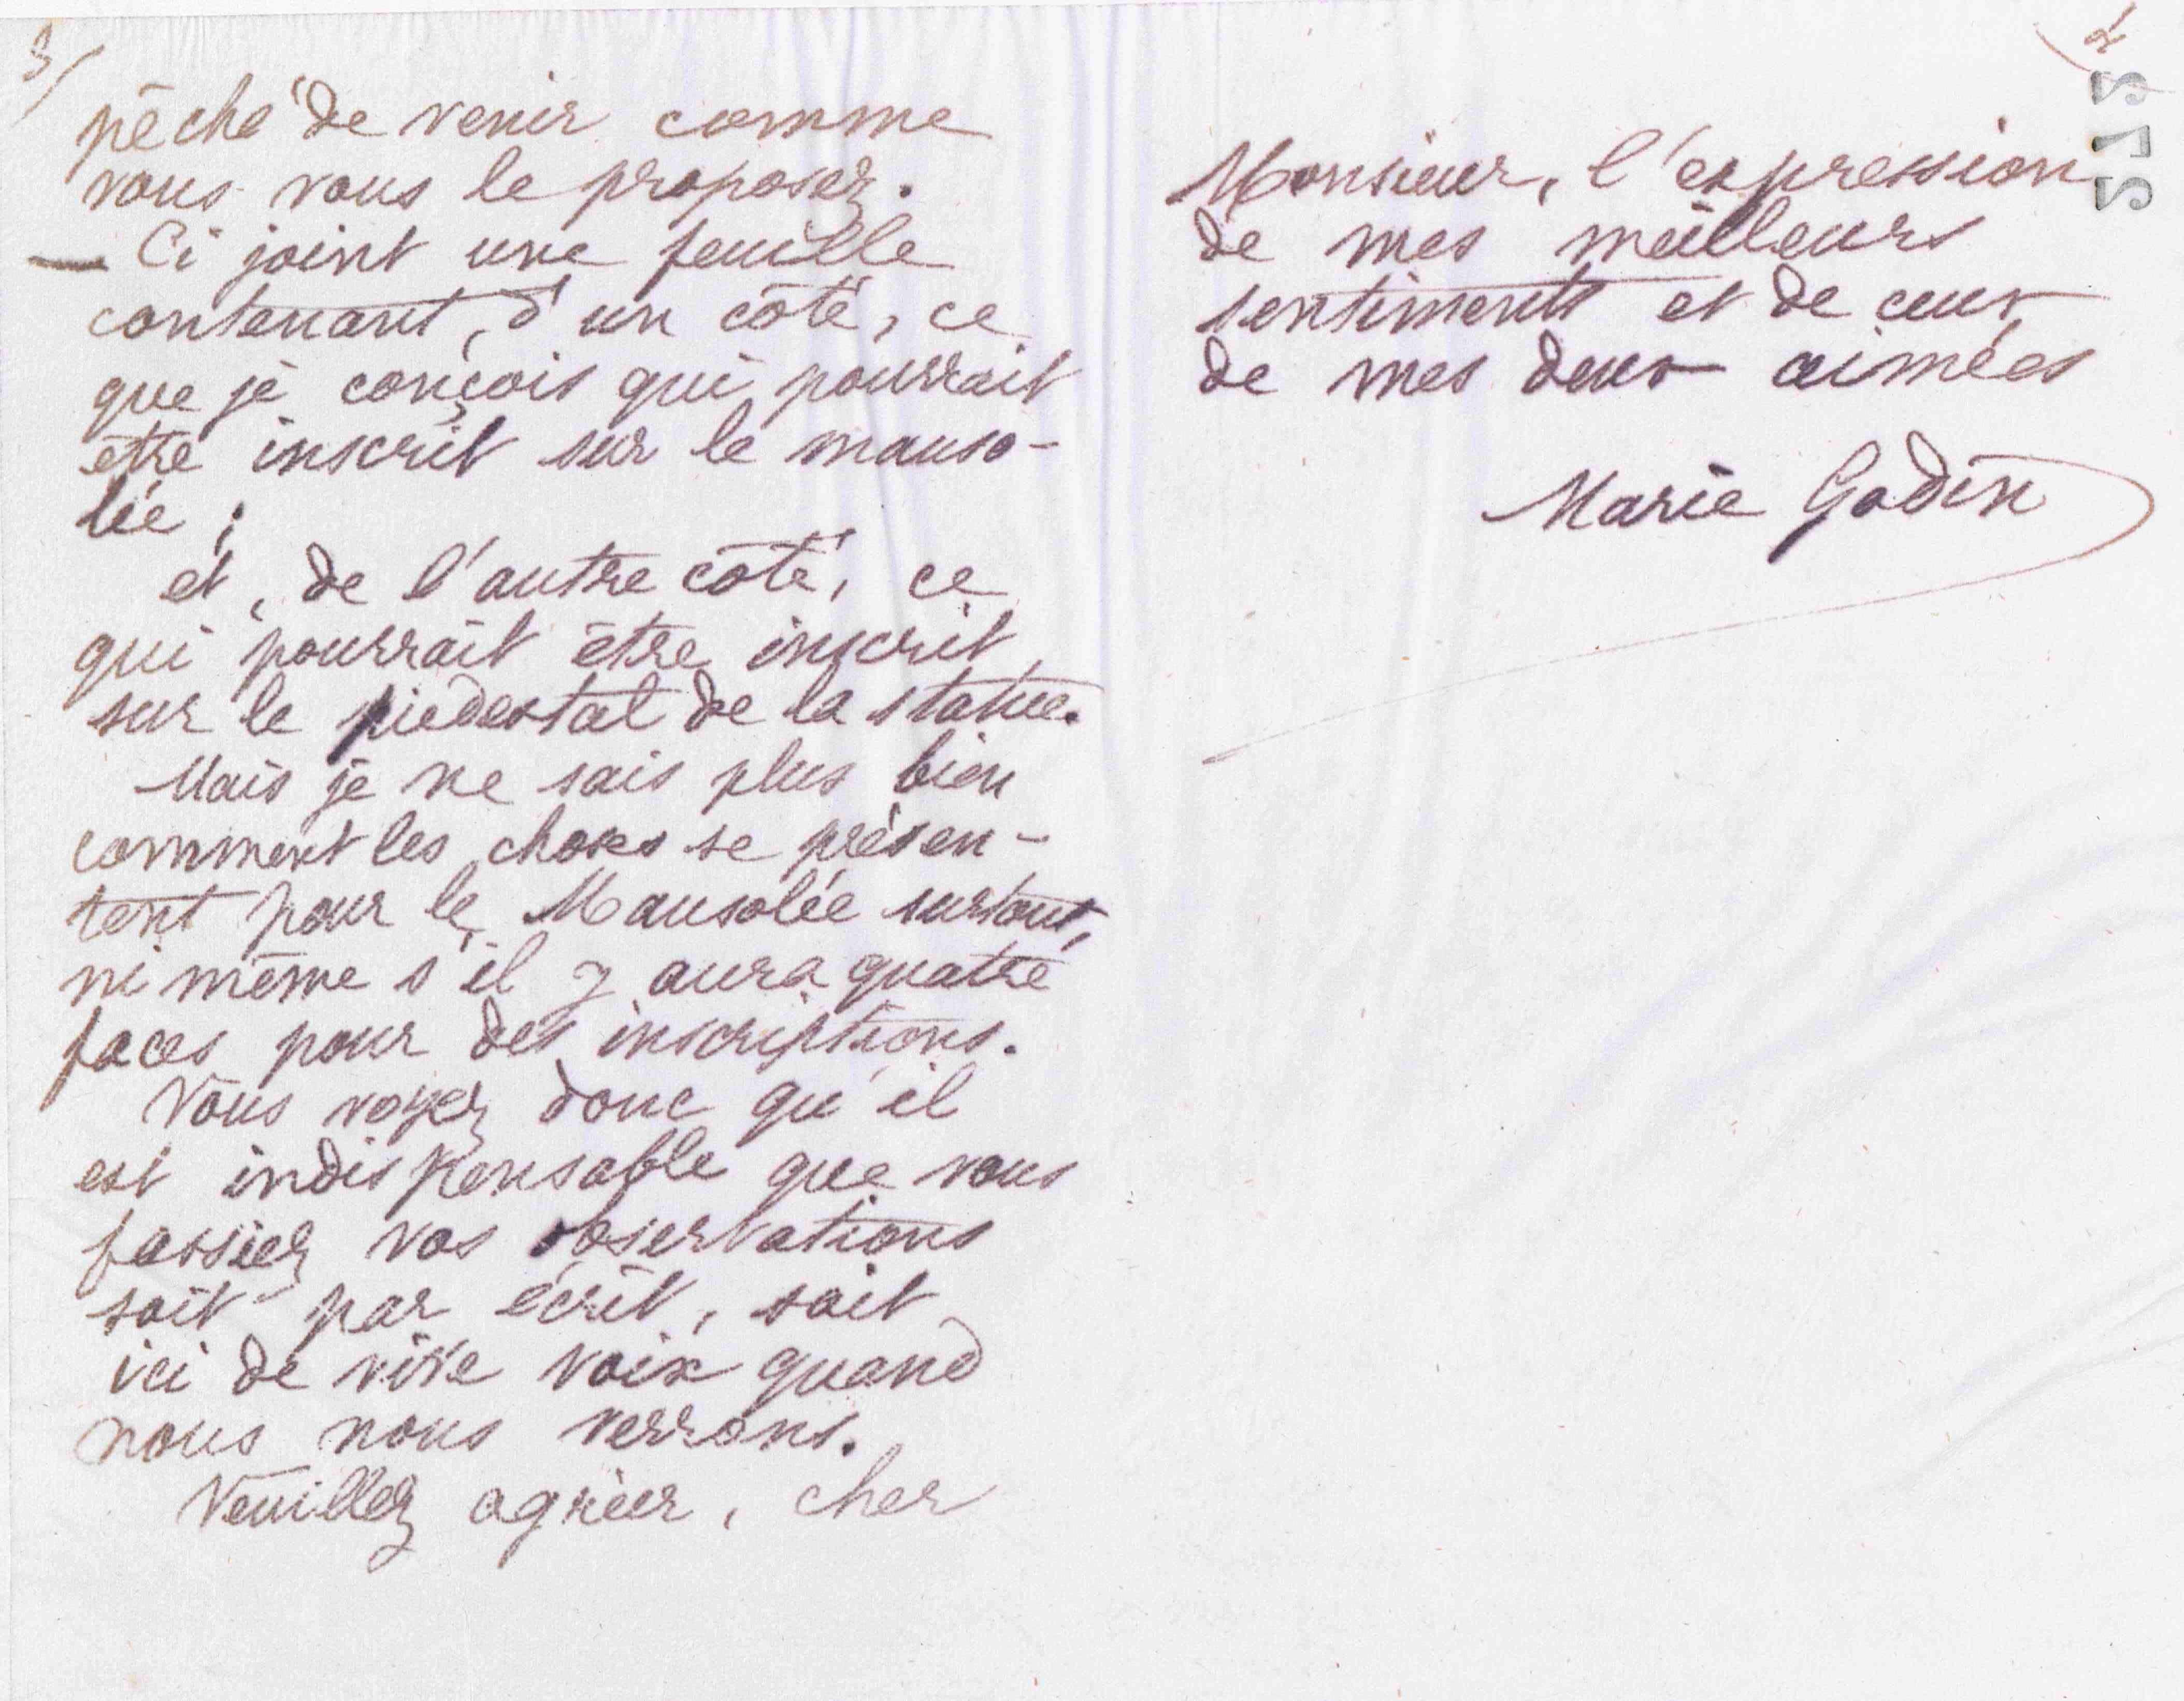 3/
pêché de venir comme
vous vous le proposez.
— Ci joint une feuille
contenant, d'un côté, ce
que je conçois qui pourrait
être inscrit sur le mauso-
lée ;
et, de l'autre côté, ce
qui pourrait être inscrit
sur le piédestal de la statue.
Mais je ne sais plus bien
comment les choses se présen-
tent pour le Mausolée surtout,
ni même s'il y aura quatre
faces pour des inscriptions.
Vous voyez donc qu'il
est indispensable que vous
fassiez vos observations
soit par écrit, soit
ici de vive voix quand
nous nous verrons.
Veuillez agréer, cher
Monsieur, l'expression
de mes meilleurs
sentiments et de ceux
de mes deux aimées
Marie Godin